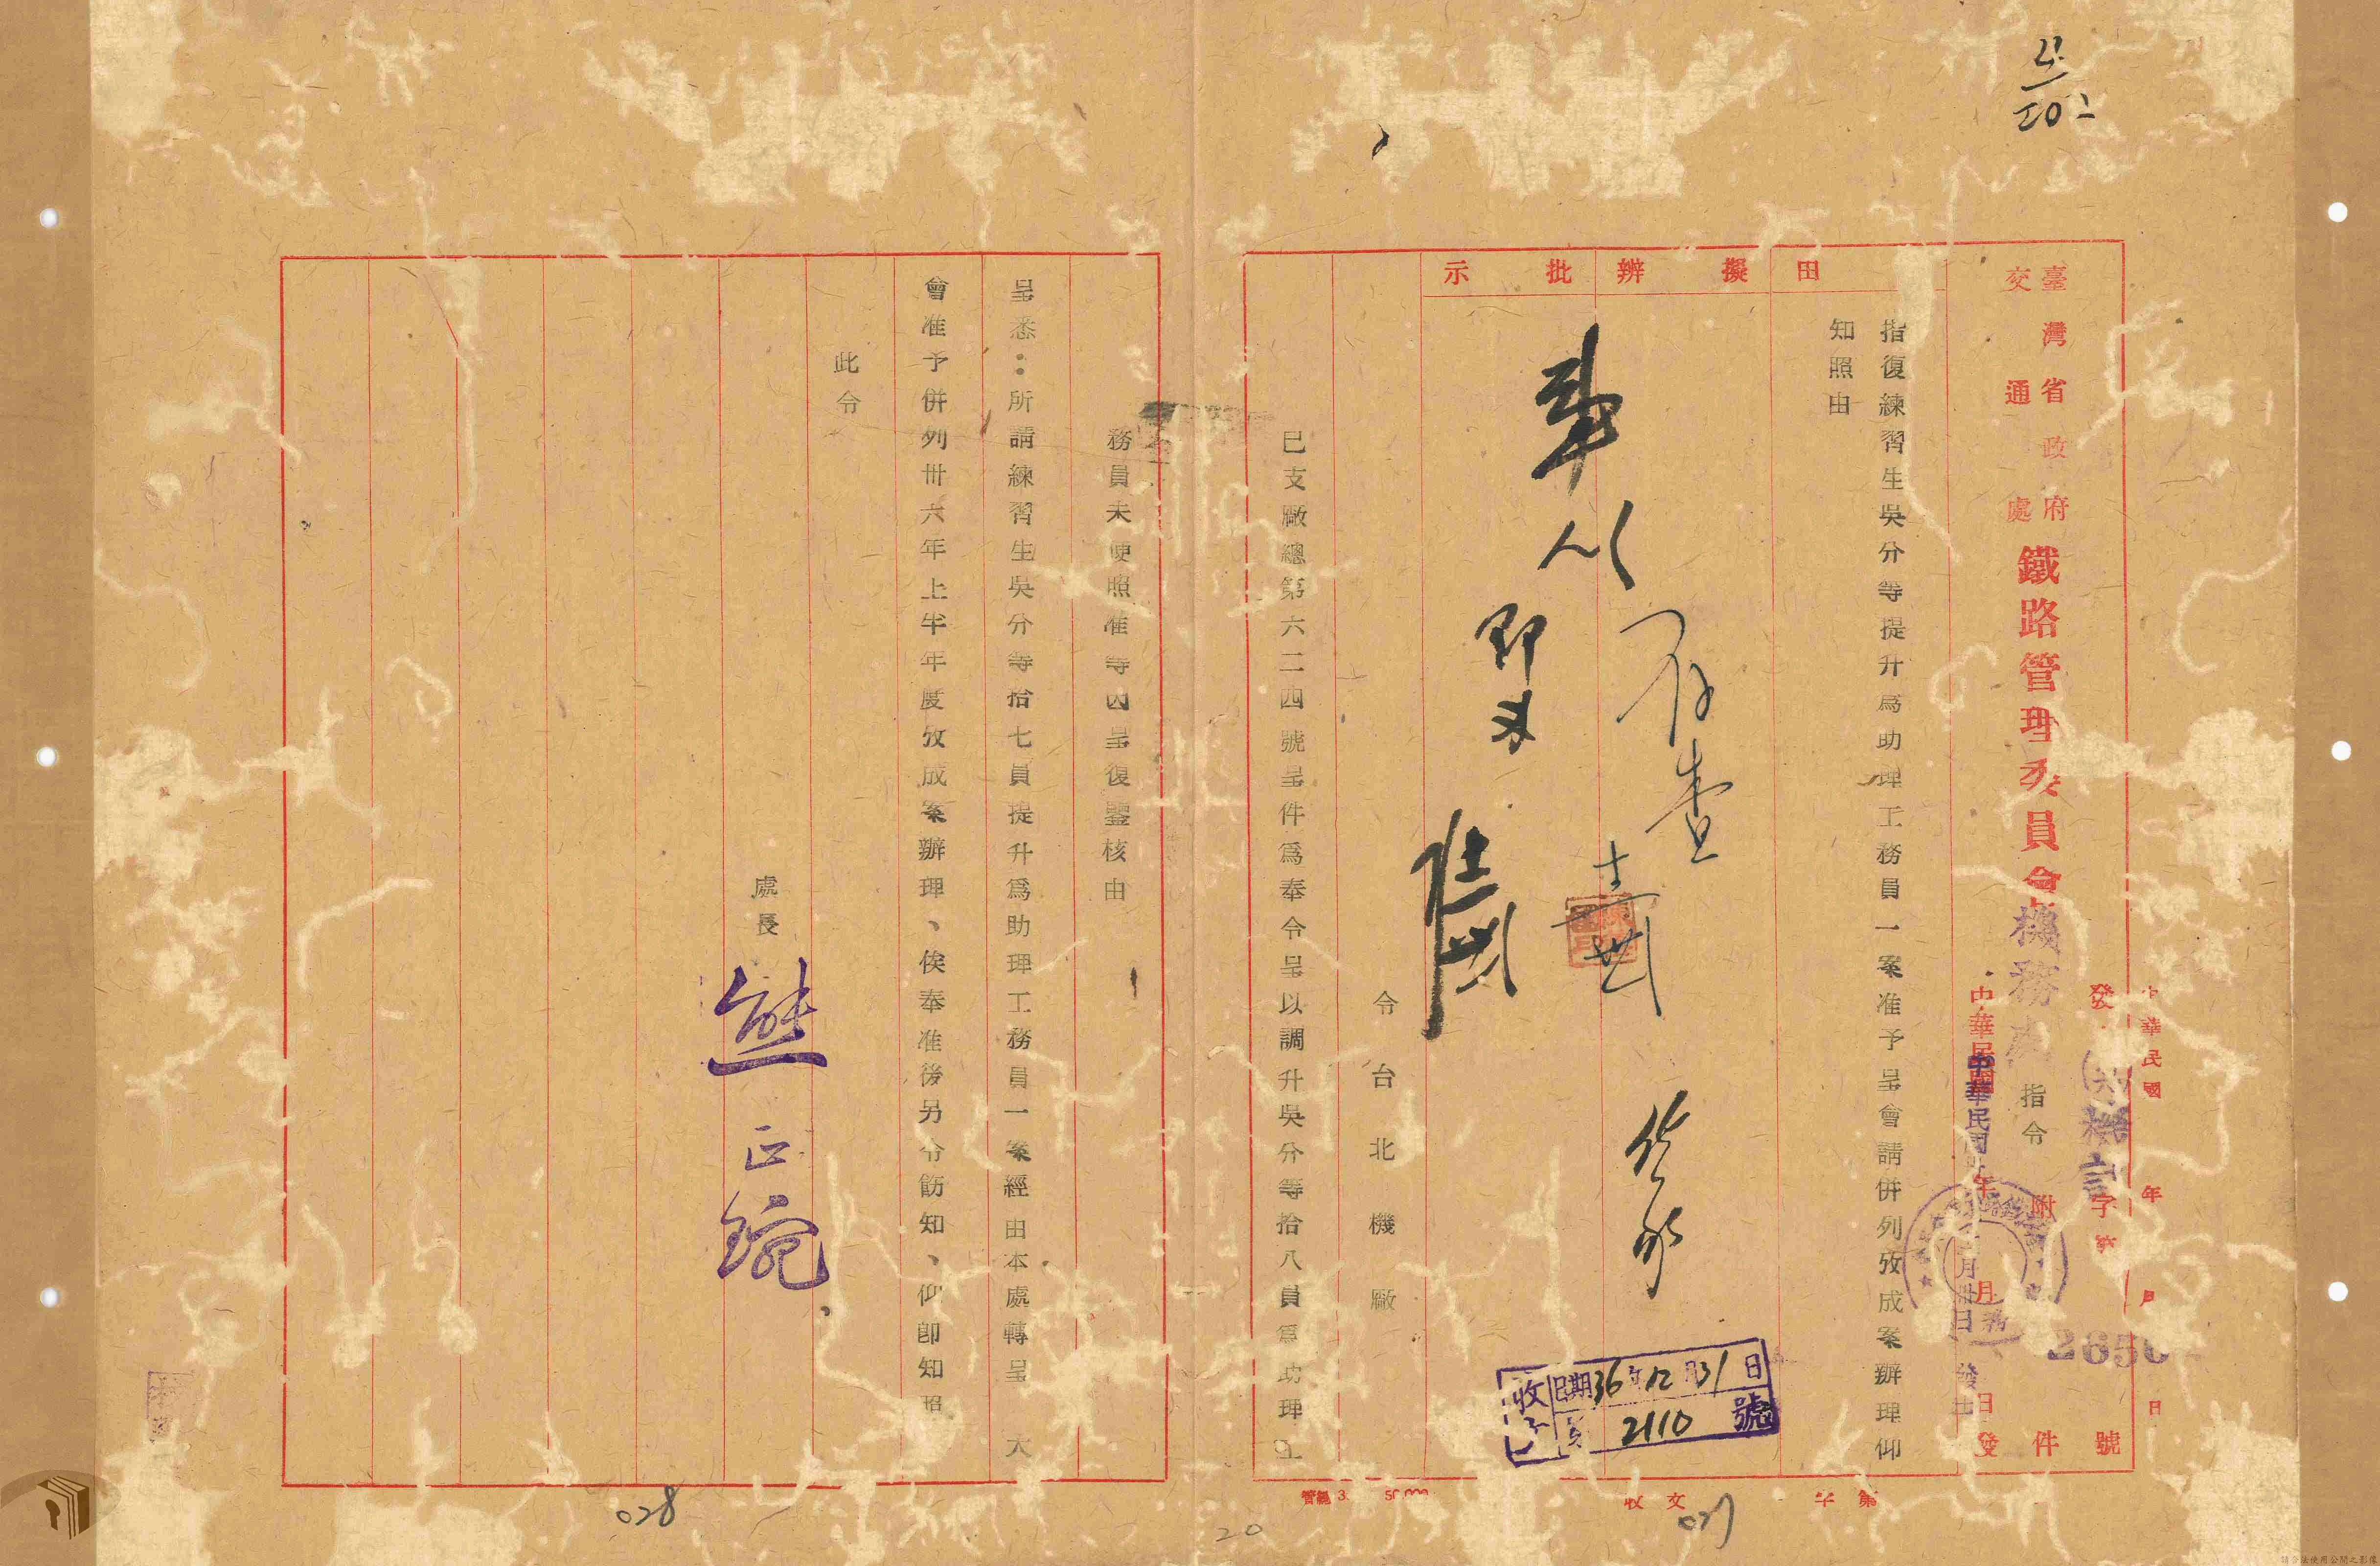 臺灣省政府
交通處
鐵路管理委員會
機務處
指令
附件
發
字第
號
2650
中華民國 年 月 日
中華民國 年 月 日發
指復練習生吳分等提升為助理工務員一案准予呈會請併列攷成案辦理仰
知照由
擬辦
批示
存查
收文
字第
日期36年12月31日
2110號
令台北機廠
巳支廠總第六二四號呈件為奉令呈以調升吳分等拾八員為助理工
務員未便照准等因呈復鑒核由
呈悉:所請練習生吳分等拾七員提升為助理工務員一案經由本處轉呈 大
會准予併列卅六年上半年度攷成案辦理、俟奉准後另令飭知、仰卽知照
此令
處長
熊正琬
027
028
20